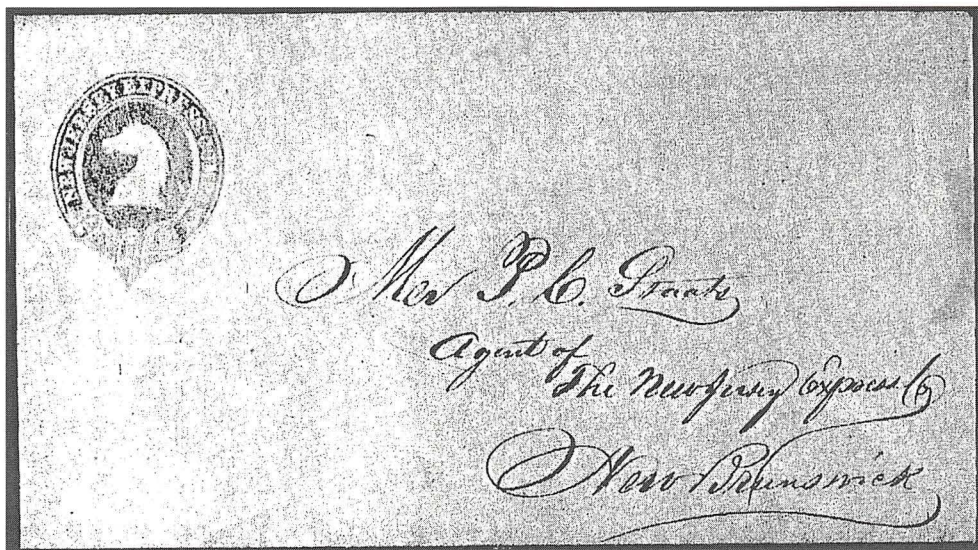 NEW JERSEY EXPRESS
Mr P. C. Staats
Agent of
The New Jersey Express Co
New Brunswick